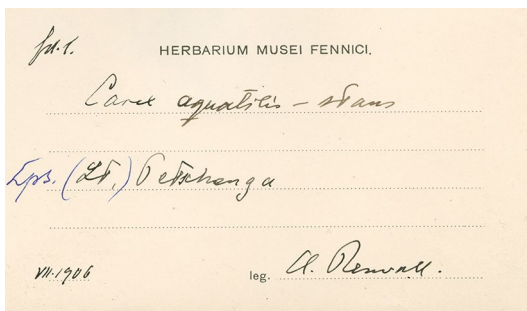 HERBARIUM MUSEI FENNICI.
Carex aquatilis – stans
Lps. (Lt.) Petschenga
VII.1906
leg. A. Renvall.